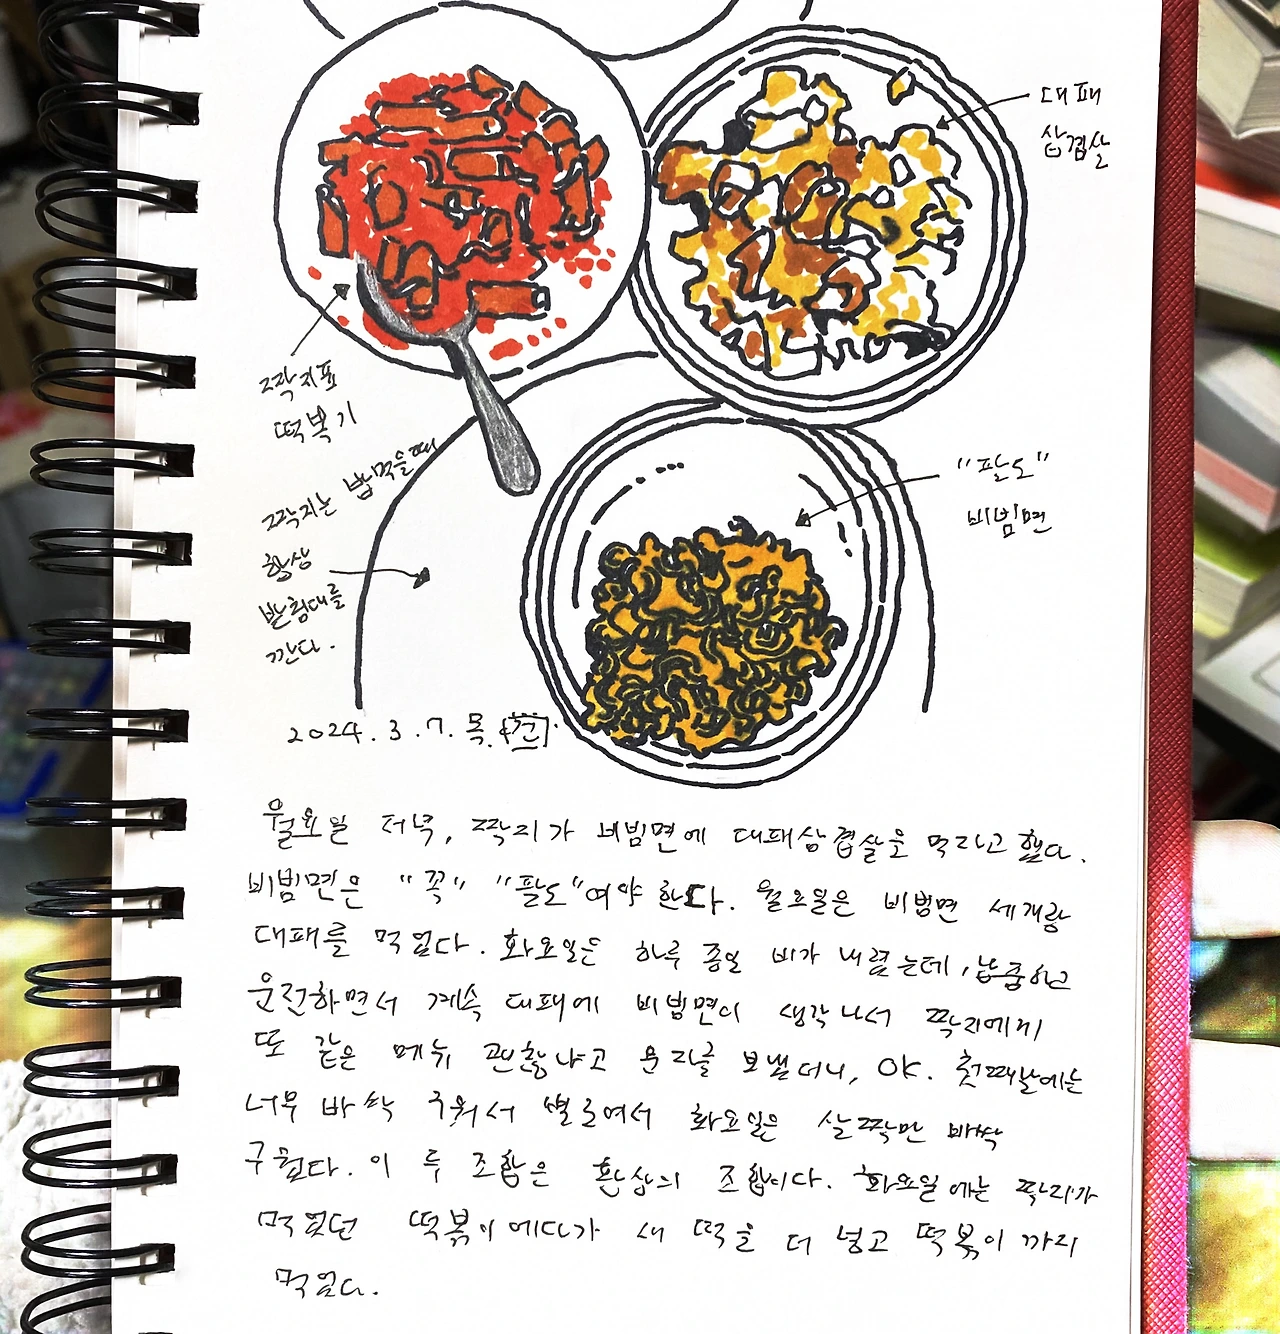 대패
삼겹살
짝지표
떡볶기
"팔도"
비빔면
짝지는 밥먹을때
항상
받침대를
깐다.
2024.3.7.목.
월요일 저녁, 짝지가 비빔면에 대패삼겹살을 먹자고 했다.
비빔면은 "꼭" "팔도"여야 한다. 월요일은 비빔면 세개랑
대패를 먹었다. 화요일은 하루 종일 비가 내렸는데, 납품하고
운전하면서 계속 대패에 비빔면이 생각나서 짝지에게
또 같은 메뉴 괜찮냐고 문자를 보냈더니, OK. 첫째날에는
너무 바싹 구워서 별로여서 화요일은 살짝만 바싹
구웠다. 이 두 조합은 환상의 조합이다. 화요일에는 짝지가
먹었던 떡볶이에다가 새 떡을 더 넣고 떡볶이까지
먹었다.